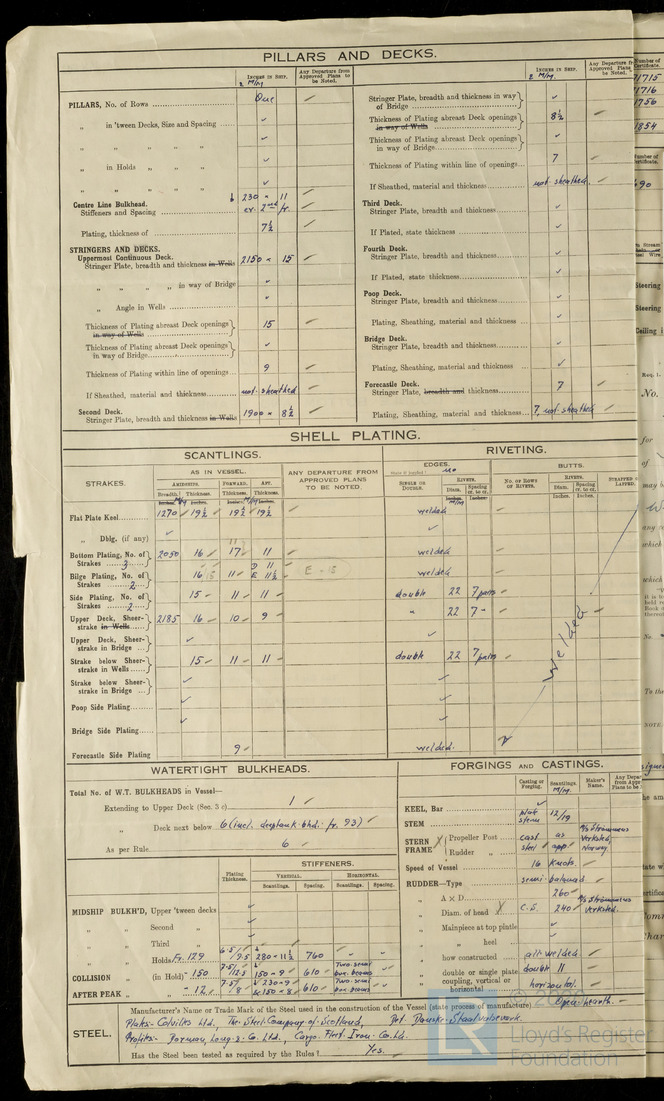 PILLARS AND DECKS.
INCHES IN SHIP.
M/M
Any Departure from Approved Plans to be Noted.
PILLARS, No. of Rows One
„ in 'tween Decks, Size and Spacing
„ „ „ „
„ in Holds „ „
„ „ „ „
Centre Line Bulkhead. 230 × 11
Stiffeners and Spacing ev. 2nd fr.
Plating, thickness of 7½
STRINGERS AND DECKS.
Uppermost Continuous Deck.
Stringer Plate, breadth and thickness in Wells 2150 × 15
„ „ „ „ in way of Bridge
„ Angle in Wells
Thickness of Plating abreast Deck openings in way of Wells 15
Thickness of Plating abreast Deck openings in way of Bridge
Thickness of Plating within line of openings 9
If Sheathed, material and thickness not sheathed
Second Deck.
Stringer Plate, breadth and thickness in Wells 1900 × 8½
INCHES IN SHIP.
M/M.
Any Departure from Approved Plans to be Noted.
Stringer Plate, breadth and thickness in way of Bridge
Thickness of Plating abreast Deck openings in way of Wells 8½
Thickness of Plating abreast Deck openings in way of Bridge
Thickness of Plating within line of openings 7
If Sheathed, material and thickness not sheathed
Third Deck.
Stringer Plate, breadth and thickness
If Plated, state thickness
Fourth Deck.
Stringer Plate, breadth and thickness
If Plated, state thickness
Poop Deck.
Stringer Plate, breadth and thickness
Plating, Sheathing, material and thickness
Bridge Deck.
Stringer Plate, breadth and thickness
Plating, Sheathing, material and thickness
Forecastle Deck.
Stringer Plate, breadth and thickness 7
Plating, Sheathing, material and thickness 7, not sheathed
SHELL PLATING.
SCANTLINGS.
STRAKES.
AS IN VESSEL.
AMIDSHIPS. FORWARD. AFT.
Breadth. Thickness. Thickness. Thickness.
ANY DEPARTURE FROM APPROVED PLANS TO BE NOTED.
RIVETING.
EDGES.
SINGLE OR DOUBLE.
RIVETS.
Diam. Spacing cr. to cr.
BUTTS.
No. OF ROWS OF RIVETS.
RIVETS.
Diam. Spacing cr. to cr.
Inches. Inches.
Flat Plate Keel 1270 19½ 19½ 19½ welded
„ Dblg. (if any)
Bottom Plating, No. of Strakes 3 2050 16 17 11 welded
Bilge Plating, No. of Strakes 2 16 11 D 11 E 11½ E - 15 welded
Side Plating, No. of Strakes 2 15 11 11 double 22 7 pairs
Upper Deck, Sheer-strake in Wells 2185 16 10 9 „ 22 7 „
Upper Deck, Sheer-strake in Bridge
Strake below Sheer-strake in Wells 15 11 11 double 22 7 pairs
Strake below Sheer-strake in Bridge
Poop Side Plating
Bridge Side Plating
Forecastle Side Plating 9 welded.
Welded
WATERTIGHT BULKHEADS.
Total No. of W.T. BULKHEADS in Vessel—
Extending to Upper Deck (Sec. 3 c) 1
„ Deck next below 6 (incl. deeptank bhd. fr. 93)
As per Rule 6
Plating Thickness.
STIFFENERS.
VERTICAL. HORIZONTAL.
Scantlings. Spacing. Scantlings. Spacing.
MIDSHIP BULKH'D, Upper 'tween decks
„ „ Second „
„ „ Third „
„ „ Holds Fr. 129 6.5/9.5 280 × 11½ 760
COLLISION „ (in Hold) 150 7.5/12.5 150 × 9 610
AFTER PEAK „ „ 12 7.5/8 230 × 9 & 150 × 8 610
FORGINGS AND CASTINGS.
Casting or Forging. Scantlings. M/M. Maker's Name.
KEEL, Bar
STEM plate stem 12/19
STERN FRAME { Propeller Post cast as
Rudder „ steel app.
A/S Strømmens Verksted, Norway
Speed of Vessel 16 knots
RUDDER—Type semi-balanced
„ A × D 260
„ Diam. of head C.S. 240 A/S Strømmens Verksted.
„ Mainpiece at top pintle
„ „ heel
„ how constructed all welded
„ double or single plate double 11
„ coupling, vertical or horizontal horizontal
STEEL.
Manufacturer's Name or Trade Mark of the Steel used in the construction of the Vessel (state process of manufacture) Open hearth.
Plates- Colvilles Ltd., The Steel Company of Scotland, Det Danske Staalvalseværk.
Profiles- Dorman, Long & Co. Ltd., Cargo Fleet Iron Co. Ld.
Has the Steel been tested as required by the Rules? Yes.
Lloyd's Register
Foundation